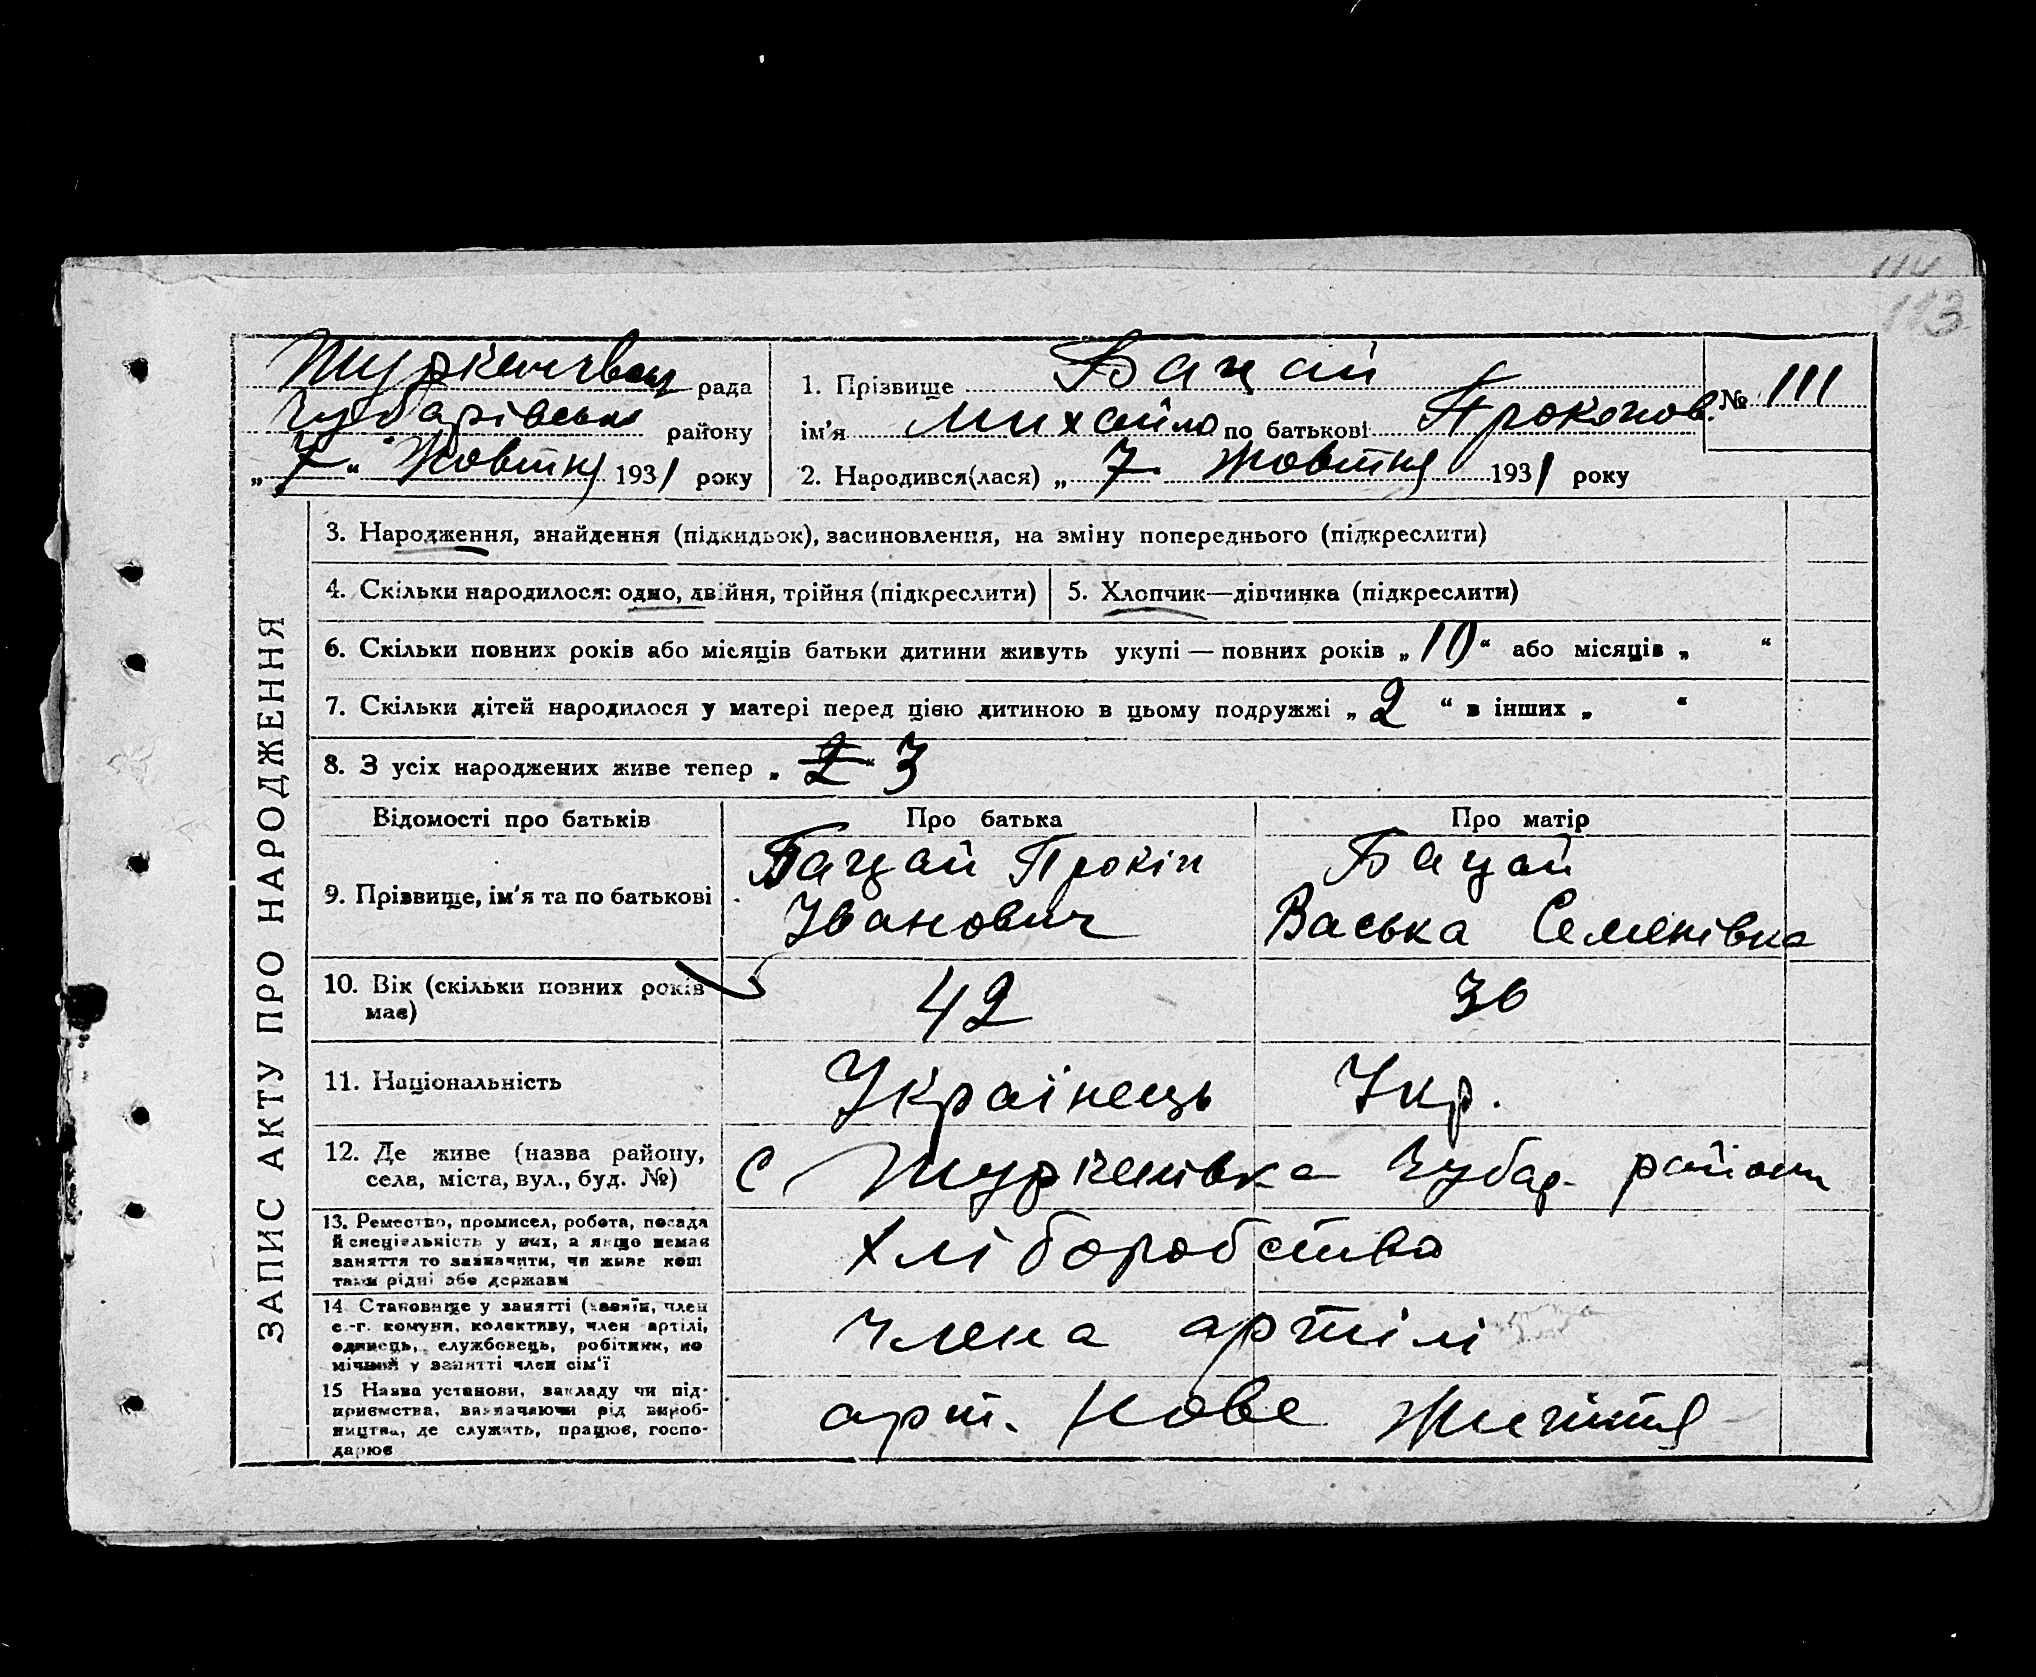 114
113
рада
Чубарівськ району
„ 7 “ Жовтня 1931 року
1. Прізвище Бацай
ім'я Михайло по батькові Прокопов.
№ 111
2. Народився(лася) „ 7 Жовтня 1931 року
ЗАПИС АКТУ ПРО НАРОДЖЕННЯ
3. Народження, знайдення (підкидьок), засиновлення, на зміну попереднього (підкреслити)
4. Скільки народилося: одно, двійня, трійня (підкреслити)
5. Хлопчик—дівчинка (підкреслити)
6. Скільки повних років або місяців батьки дитини живуть укупі — повних років „ 10 “ або місяців „ “
7. Скільки дітей народилося у матері перед цією дитиною в цьому подружжі „ 2 “ в інших „ “
8. З усіх народжених живе тепер „ 2 “ 3
Відомості про батьків
Про батька
Про матір
9. Прізвище, ім'я та по батькові
Бацай Прокіп
Іванович
Бацай
Васька Семенівна
10. Вік (скільки повних років
має)
42
36
11. Національність
Українець
Укр.
12. Де живе (назва району,
села, міста, вул., буд. №)
с Туркенівка Чубар. району
13. Ремество, промисел, робота, посада
й спеціяльність у них, а якщо немає
заняття то зазначити, чи живе кош
тами рідні або держави
Хліборобство
14 Становище у занятті (хазяїн, член
с.-г. комуни, колективу, член артілі,
одинець, службовець, робітник, по
мічний у занятті член сім'ї
члена артілі
15 Назва установи, закладу чи під-
приємства, визначаючи рід вироб-
ництва, де служить, працює, госпо-
дарює
арт. Нове Життя